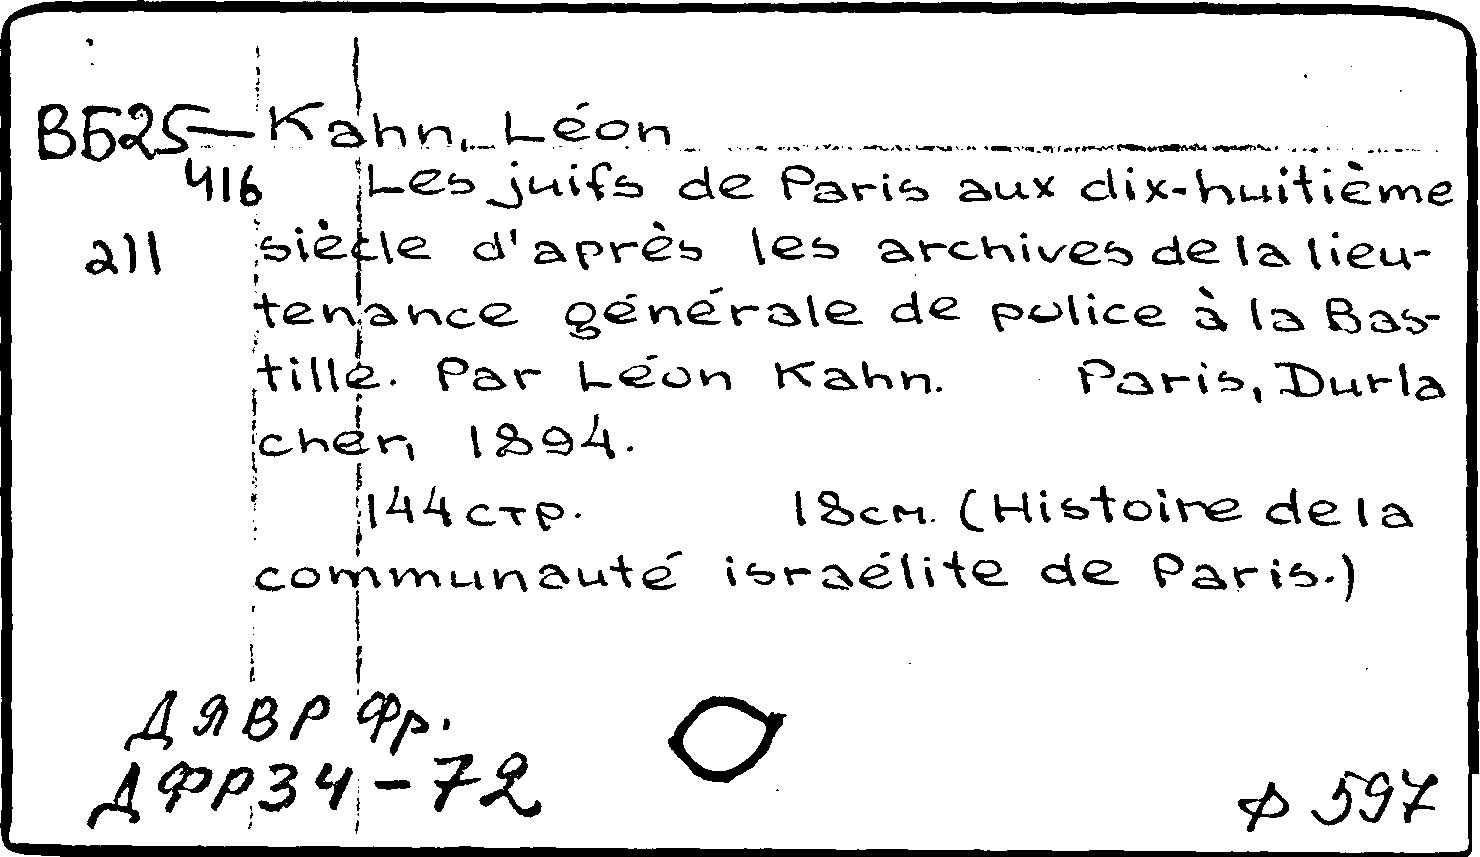 ВБ25— Kahn, Léon
416 Les juifs de Paris aux dix-huitième
211 siècle d'après les archives de la lieu-
tenance générale de police à la Bas-
tille. Par Léon Kahn. Paris, Durla
cher, 1894.
144 стр. 18 см. (Histoire de la
communauté israélite de Paris.)
ДЯВР Фр.
ДФР 34-72
ф 597